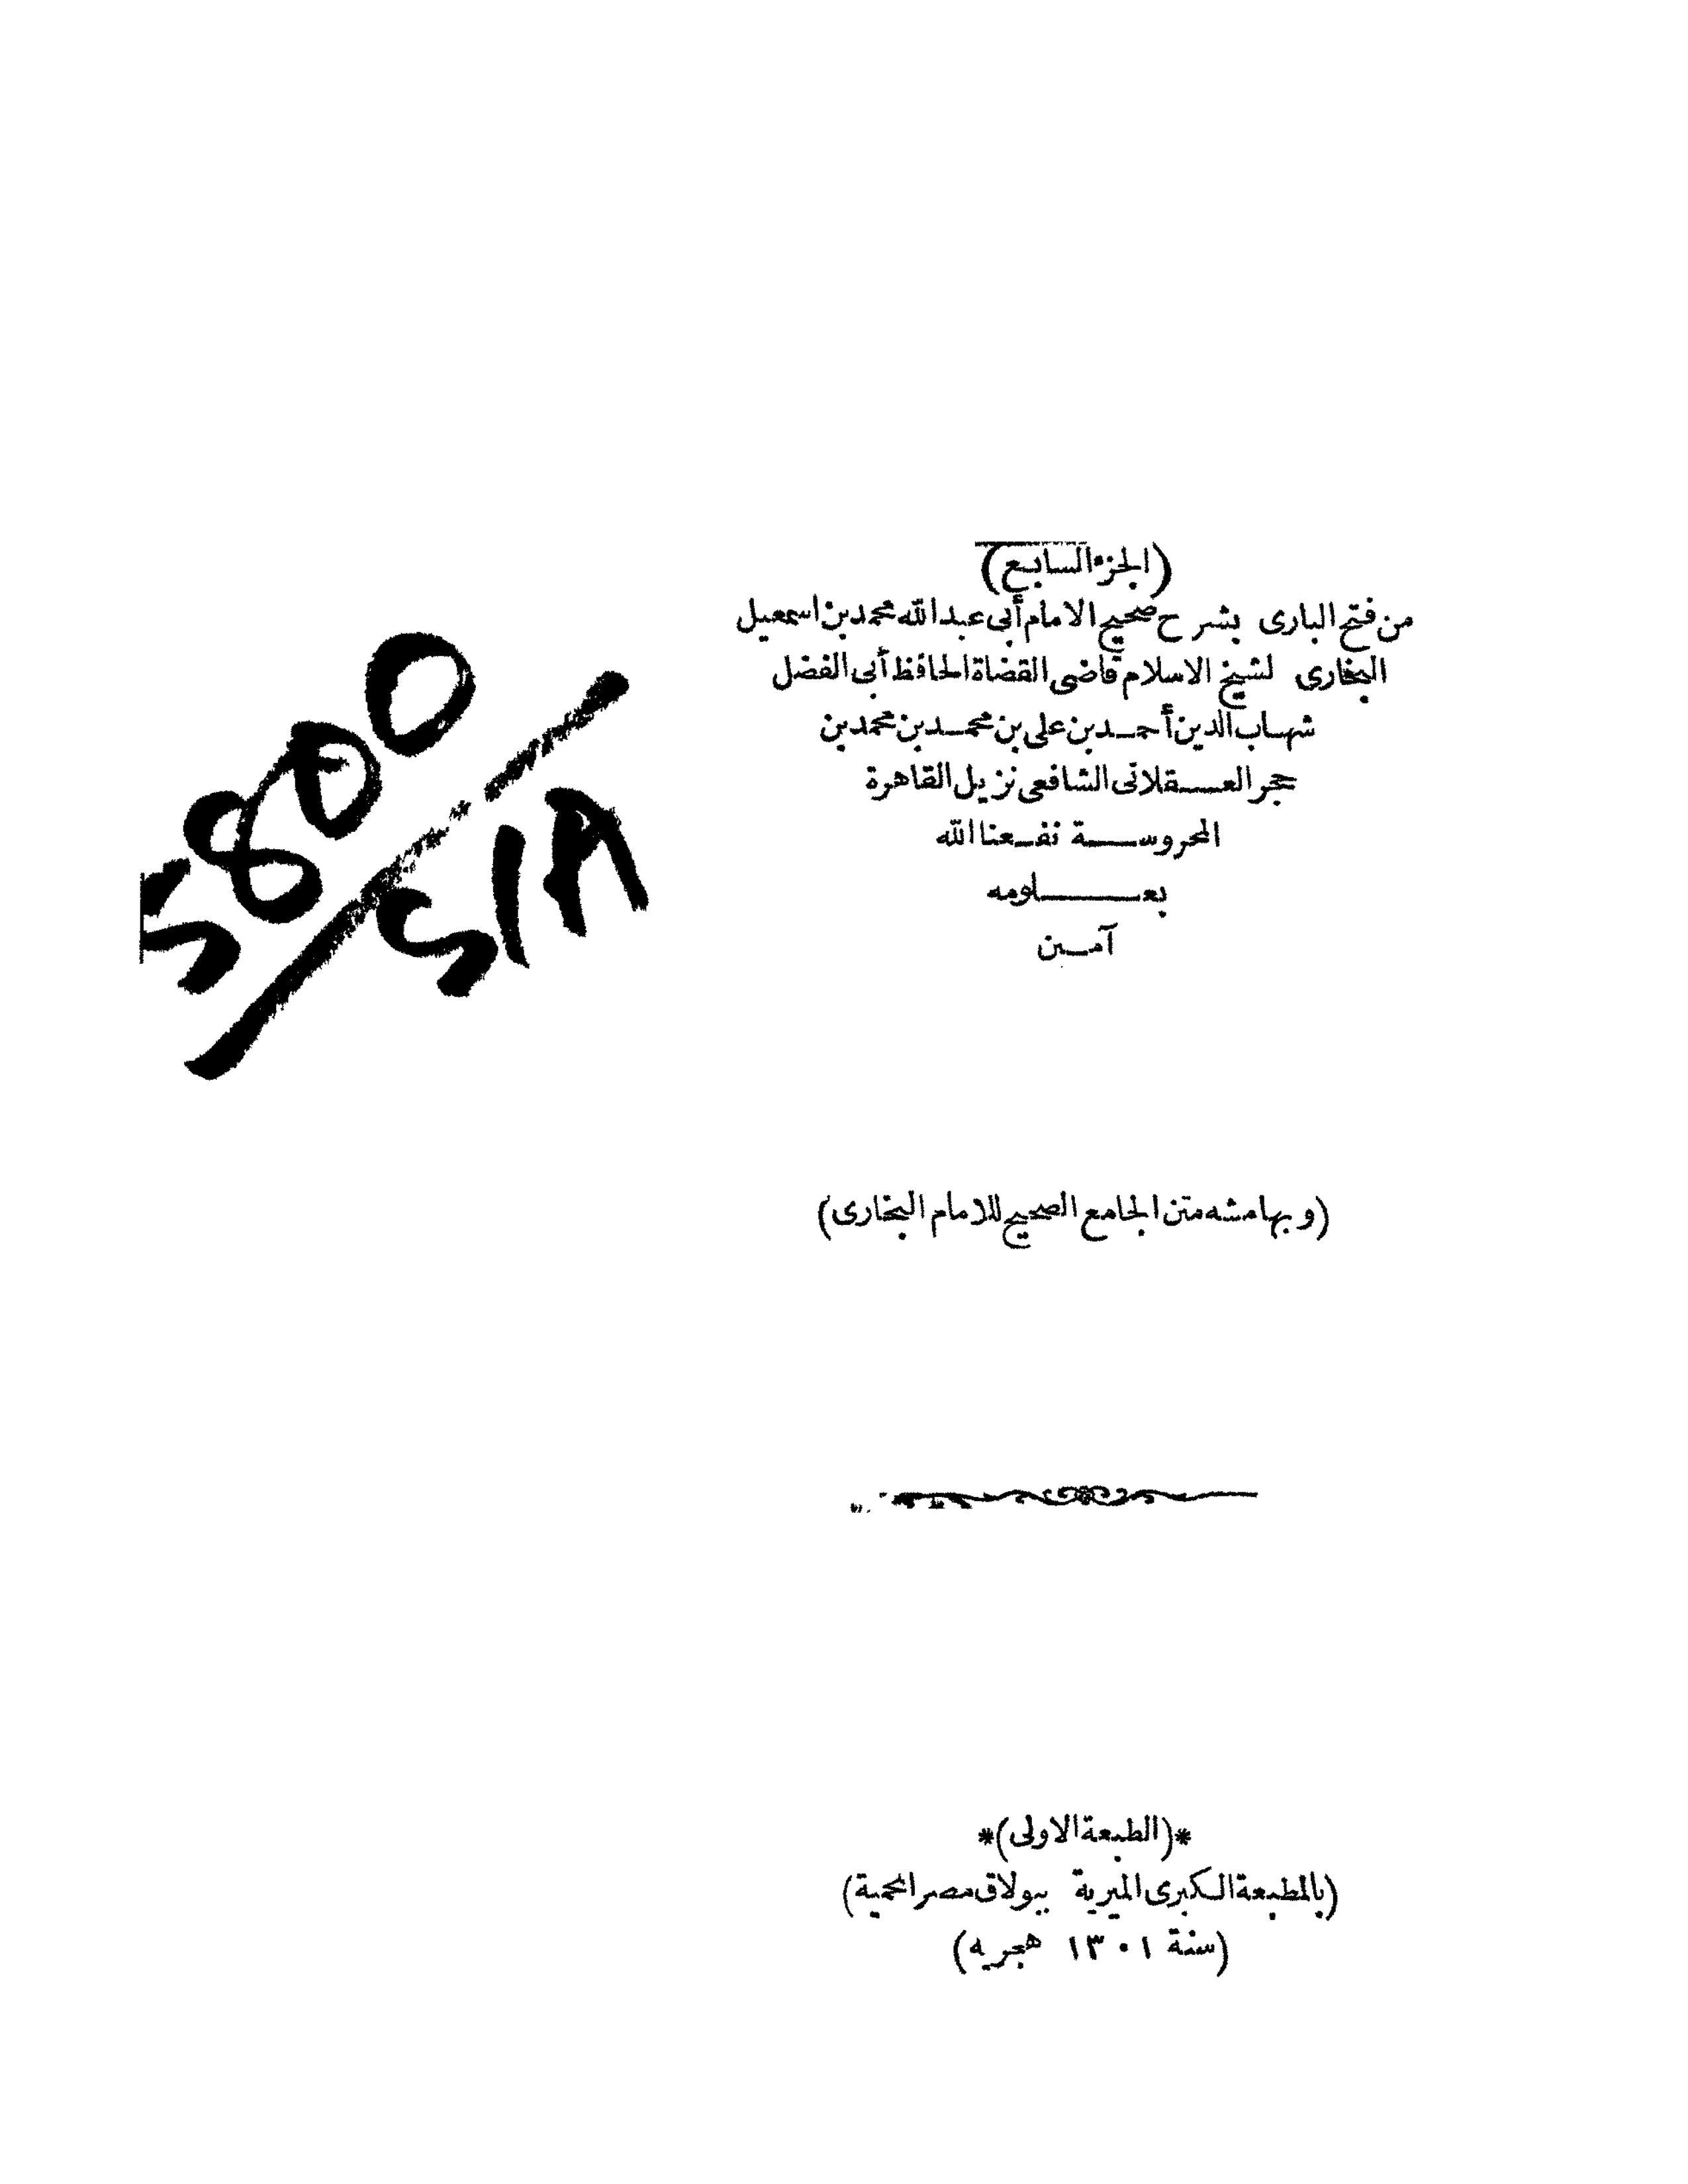 (الجزء السابع)
من فتح البارى بشرح صحيح الامام أبى عبدالله محمد بن اسمعيل
البخارى لشيخ الاسلام قاضى القضاة الحافظ أبى الفضل
شهاب الدين أحمد بن على بن محمد بن محمد بن
حجر العسقلانى الشافعى نزيل القاهرة
المحروسة نفعنا الله
بعلومه
آمين
5800
(وبهامشه متن الجامع الصحيح للامام البخارى)
*(الطبعة الاولى)*
(بالمطبعة الكبرى الميرية ببولاق مصر المحمية)
(سنة ١٣٠١ هجريه)